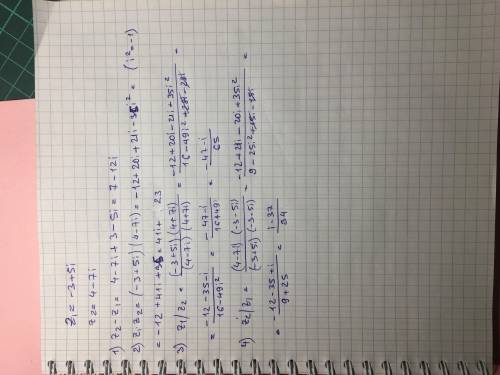 z₁ = -3+5i
z₂ = 4-7i
1) z₂-z₁ = 4-7i+3-5i = 7-12i
2) z₁z₂ = (-3+5i)(4-7i) = -12+20i+21i-35i² = (i²=-1)
= -12+41i+35 = 41i+23
3) z₁/z₂ = (-3+5i)(4+7i)/(4-7i)(4+7i) = -12+20i-21i+35i²/16-49i²+28i-28i =
= -12-35-i/16-49i² = -47-i/16+49 = -47-i/65
4) z₂/z₁ = (4-7i)(-3-5i)/(-3+5i)(-3-5i) = -12+21i-20i+35i²/9-25i²+15i-15i =
= -12-35+i/9+25 = i-37/34